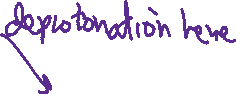 deprotonation here